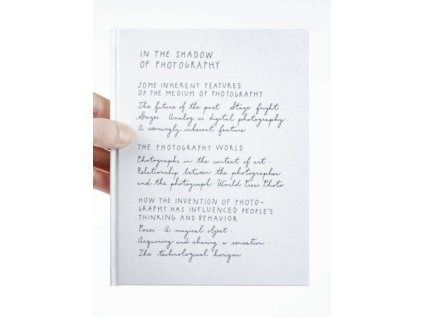 IN THE SHADOW
OF PHOTOGRAPHY
SOME INHERENT FEATURES
OF THE MEDIUM OF PHOTOGRAPHY
The future of the past · Stage fright ·
Gazes · Analog in digital photography
A seemingly inherent feature
THE PHOTOGRAPHY WORLD
Photographs in the context of art ·
Relationship between the photographer
and the photograph · World Press Photo
HOW THE INVENTION OF PHOTO-
GRAPHY HAS INFLUENCED PEOPLE'S
THINKING AND BEHAVIOR
Poses · A magical object ·
Acquiring and sharing a sensation ·
The technological horizon